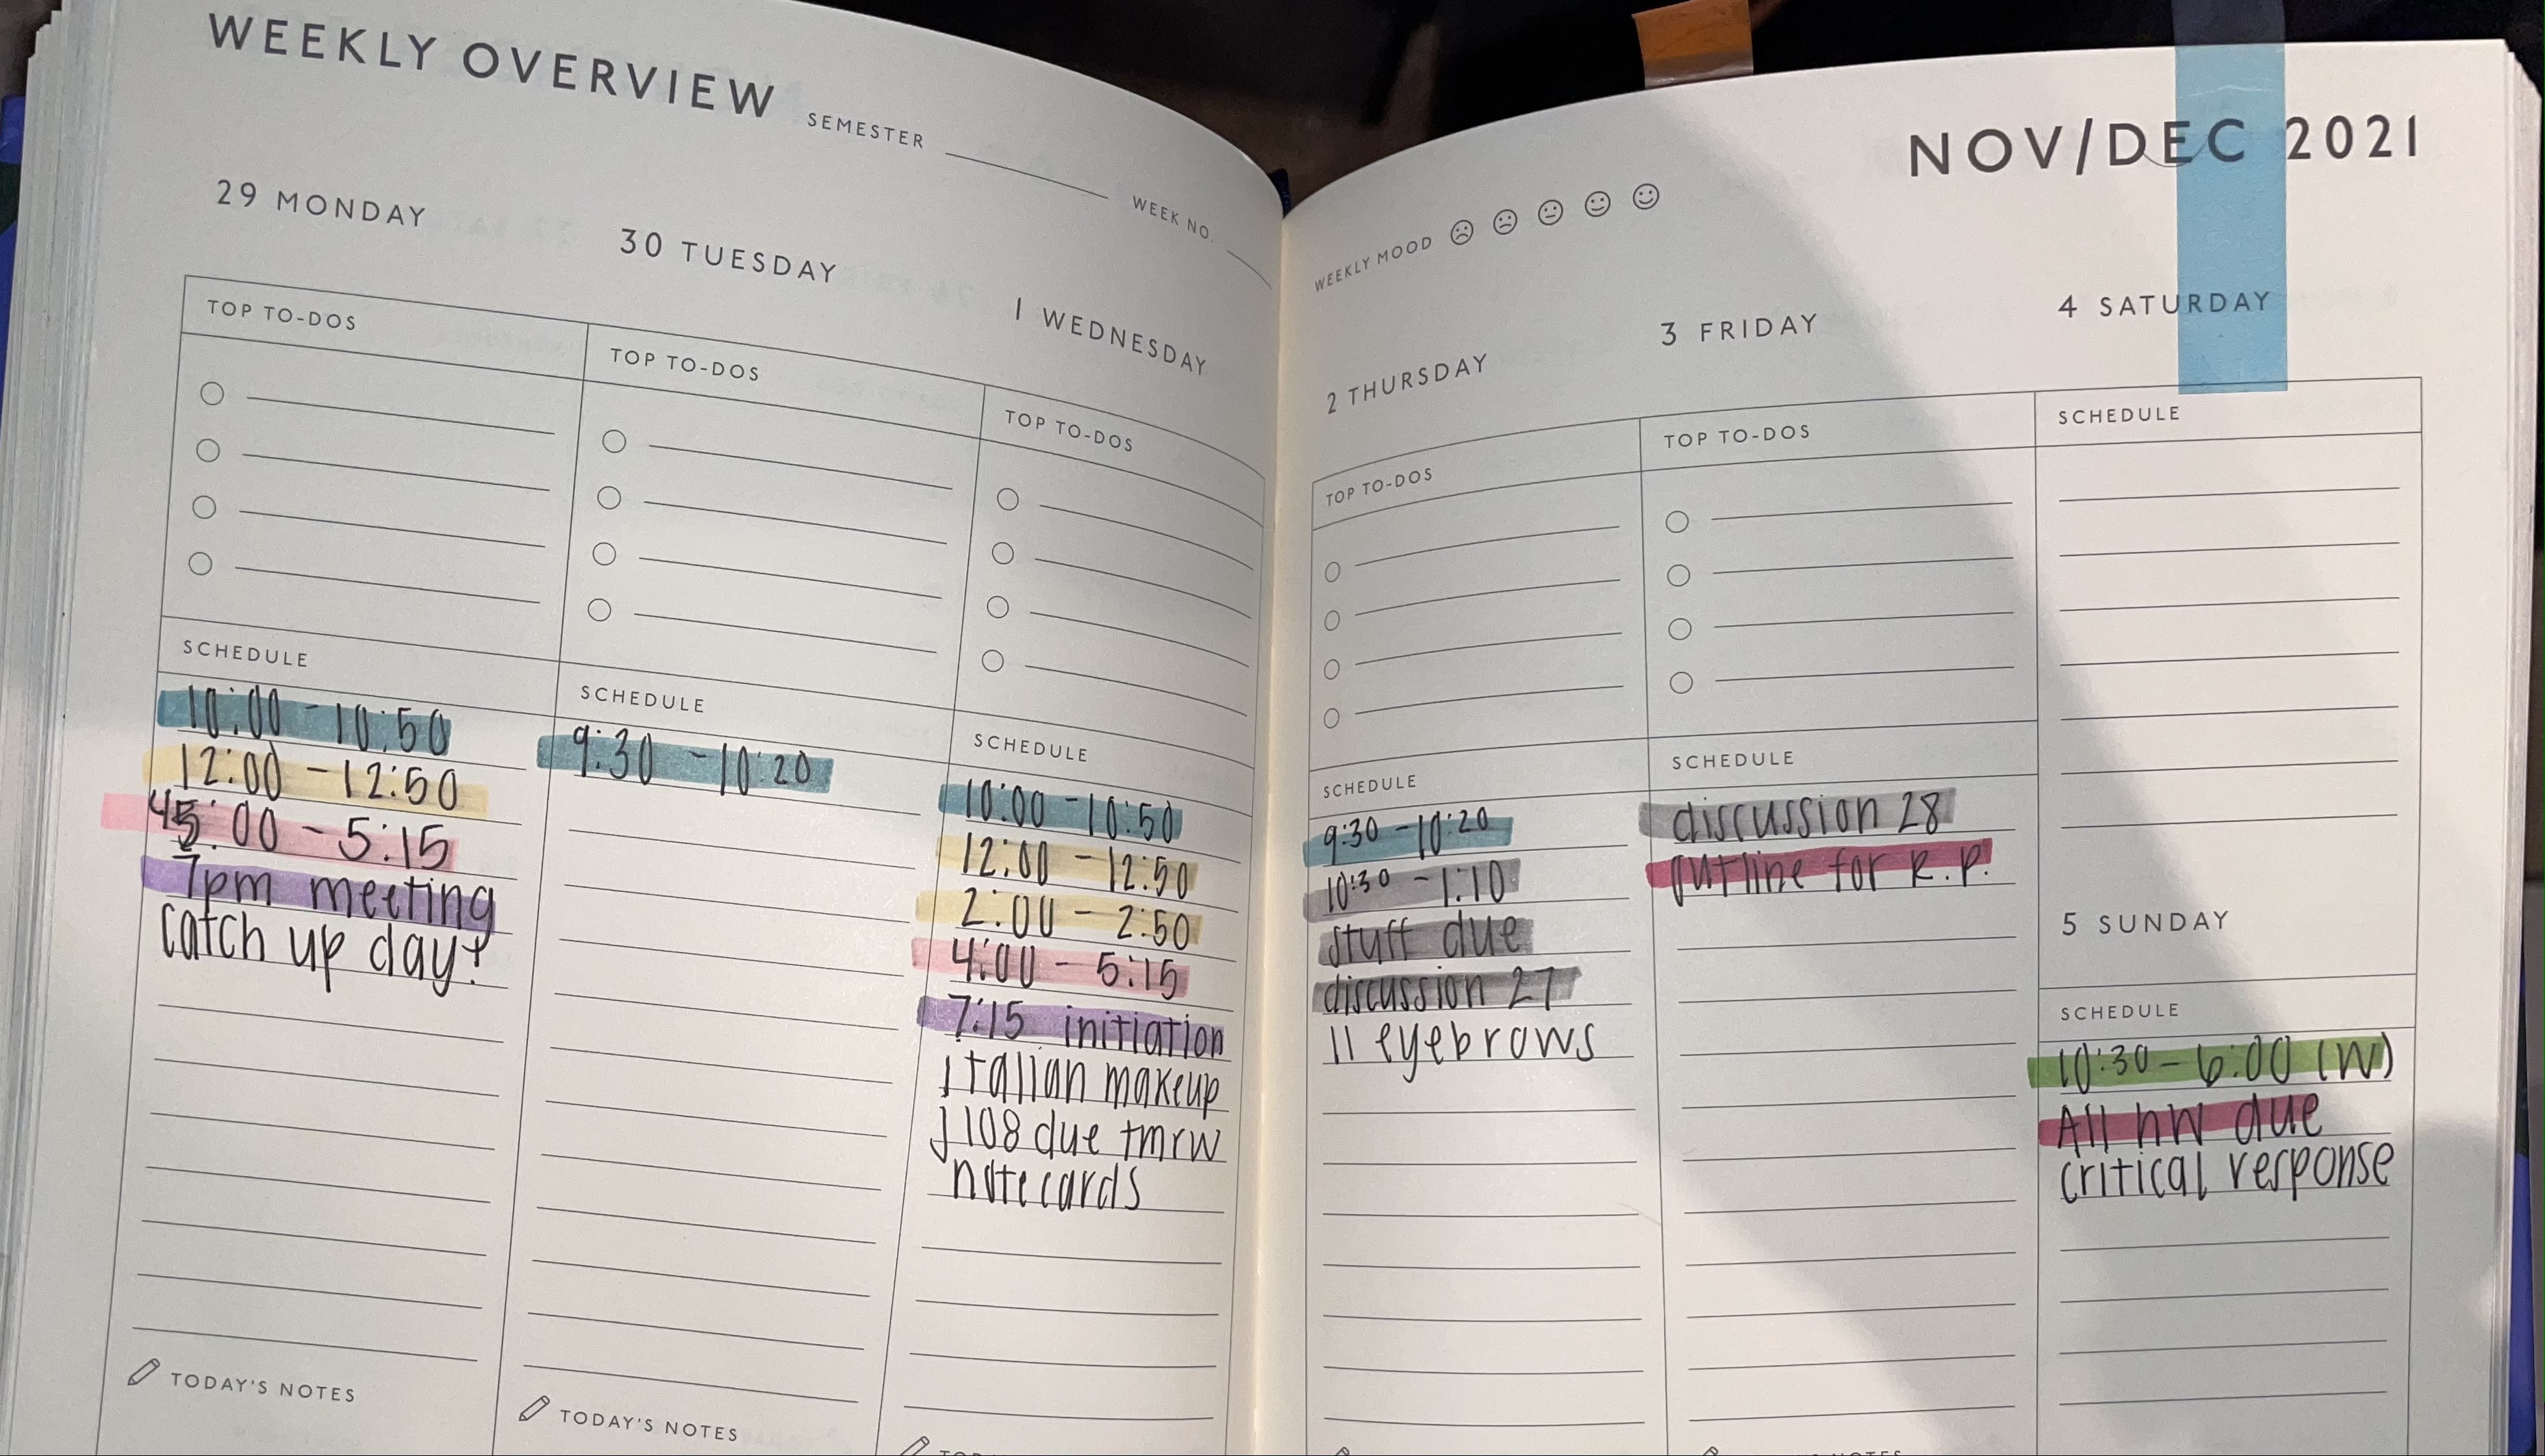 WEEKLY OVERVIEW
SEMESTER
WEEK NO.
29 MONDAY
TOP TO-DOS
SCHEDULE
10:00 - 10:50
12:00 - 12:50
4:00 - 5:15
7pm meeting
catch up day!
TODAY'S NOTES
30 TUESDAY
TOP TO-DOS
SCHEDULE
9:30 - 10:20
TODAY'S NOTES
1 WEDNESDAY
TOP TO-DOS
SCHEDULE
10:00 - 10:50
12:00 - 12:50
2:00 - 2:50
4:00 - 5:15
7:15 initiation
Italian makeup
J108 due tmrw
notecards
NOV/DEC 2021
WEEKLY MOOD
2 THURSDAY
TOP TO-DOS
SCHEDULE
9:30 - 10:20
10:30 - 1:10
stuff due
discussion 27
11 eyebrows
3 FRIDAY
TOP TO-DOS
SCHEDULE
discussion 28
outline for R.P.
4 SATURDAY
SCHEDULE
5 SUNDAY
SCHEDULE
10:30 - 6:00 (W)
All hw due
critical response